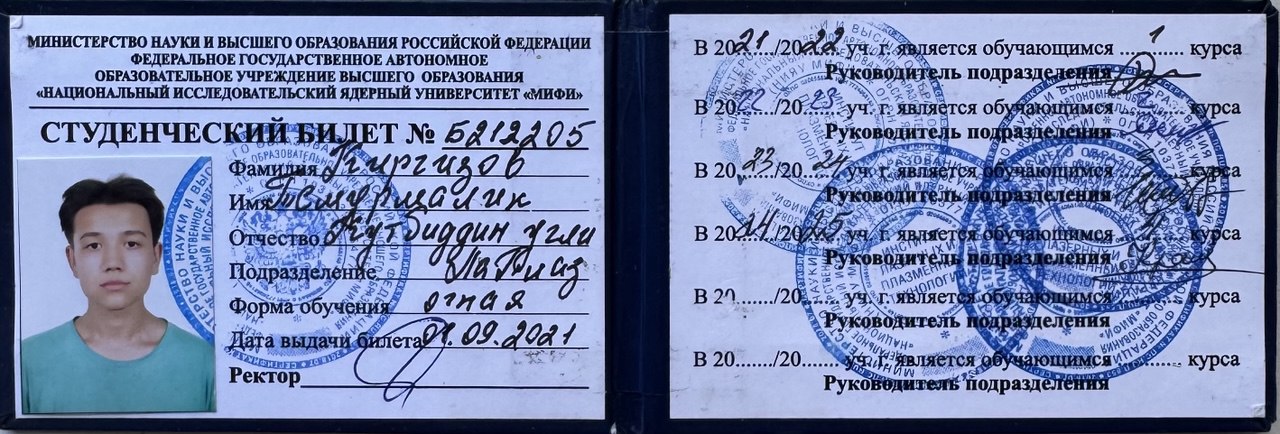 МИНИСТЕРСТВО НАУКИ И ВЫСШЕГО ОБРАЗОВАНИЯ РОССИЙСКОЙ ФЕДЕРАЦИИ
ФЕДЕРАЛЬНОЕ ГОСУДАРСТВЕННОЕ АВТОНОМНОЕ
ОБРАЗОВАТЕЛЬНОЕ УЧРЕЖДЕНИЕ ВЫСШЕГО ОБРАЗОВАНИЯ
«НАЦИОНАЛЬНЫЙ ИССЛЕДОВАТЕЛЬСКИЙ ЯДЕРНЫЙ УНИВЕРСИТЕТ «МИФИ»
СТУДЕНЧЕСКИЙ БИЛЕТ № Б212205
Фамилия Киргизов
Имя Темурмалик
Отчество Кутбиддин угли
Подразделение ЛаПлаз
Форма обучения очная
Дата выдачи билета 01.09.2021
Ректор
В 2021/2022 уч. г. является обучающимся 1 курса
Руководитель подразделения
В 2022/2023 уч. г. является обучающимся курса
Руководитель подразделения
В 2023/2024 уч. г. является обучающимся курса
Руководитель подразделения
В 2024/2025 уч. г. является обучающимся курса
Руководитель подразделения
В 20......./20....... уч. г. является обучающимся курса
Руководитель подразделения
В 20......./20....... уч. г. является обучающимся курса
Руководитель подразделения